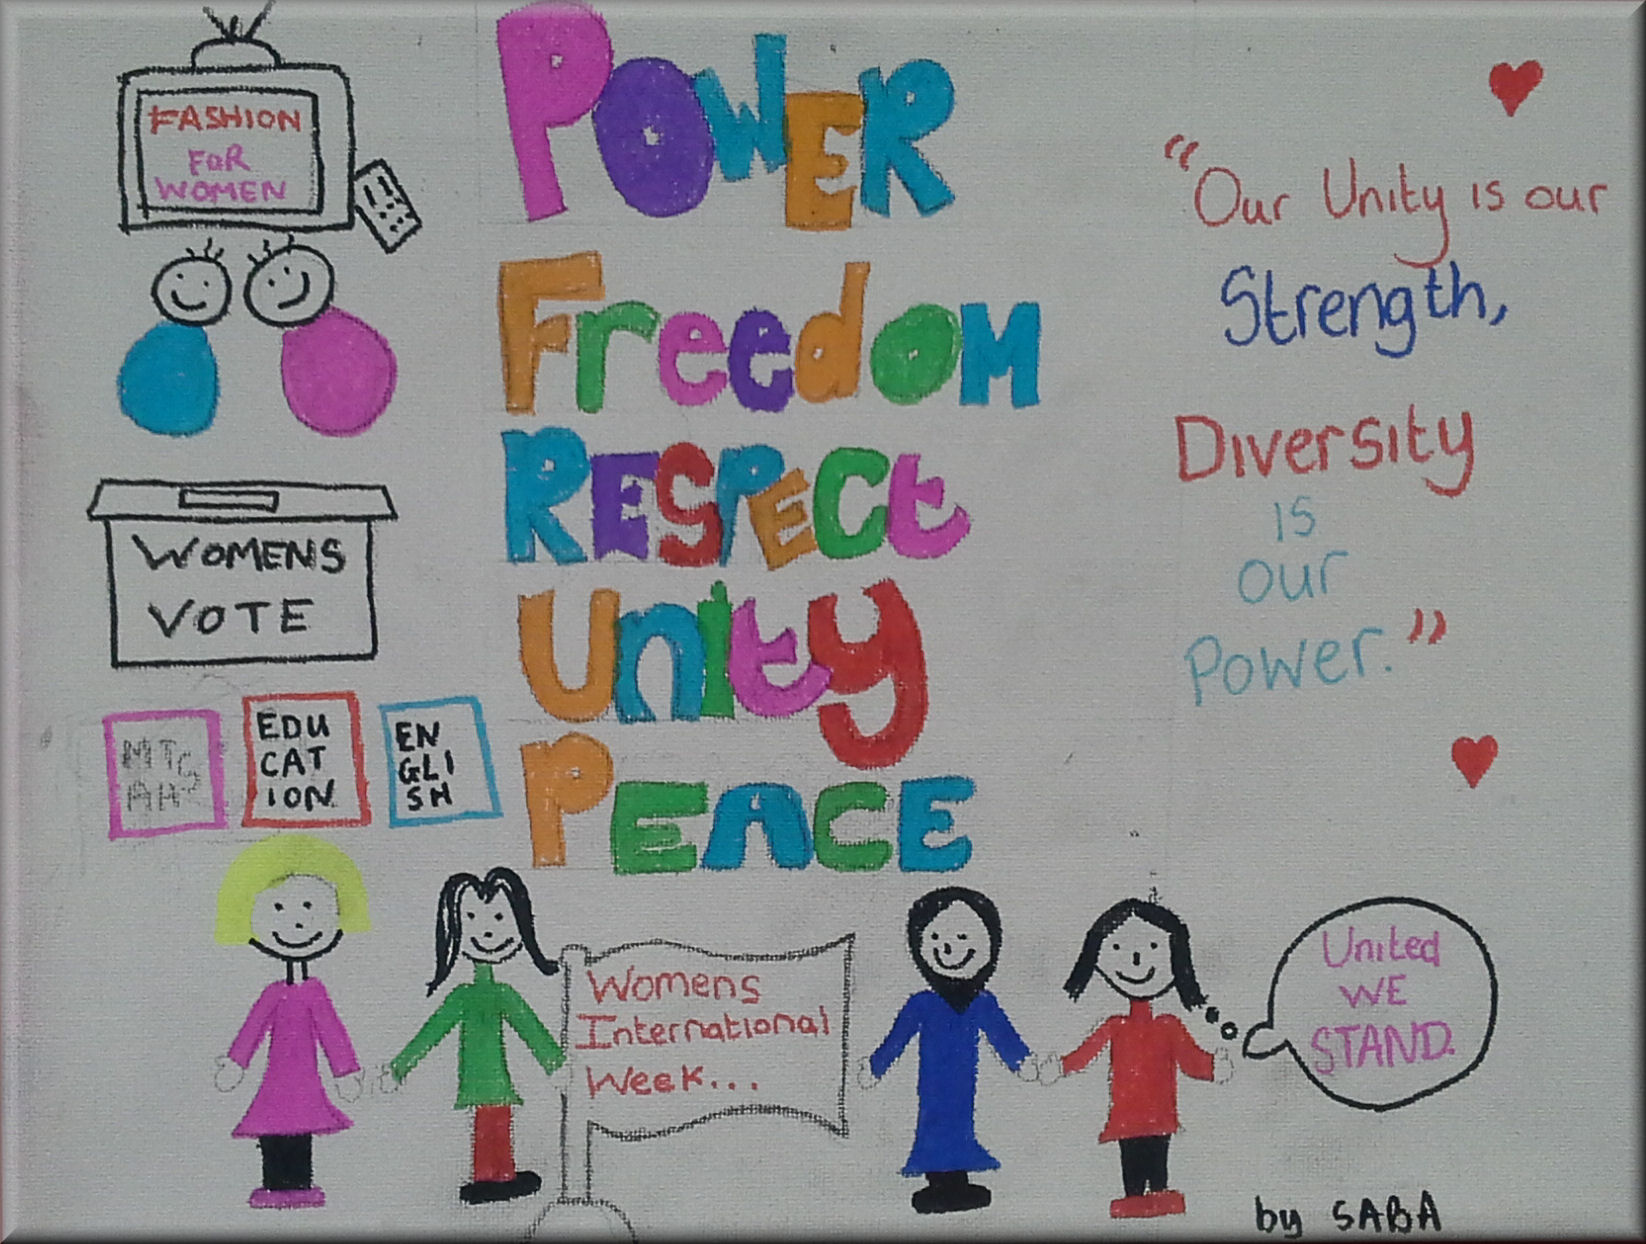 FASHION
FOR
WOMEN
POWER
Freedom
RESPECt
Unity
PEACE
"Our Unity is our
Strength,
Diversity
is
our
Power."
WOMENS
VOTE
EDU
CAT
ION
EN
GLI
SH
Womens
International
Week...
United
WE
STAND.
by SABA